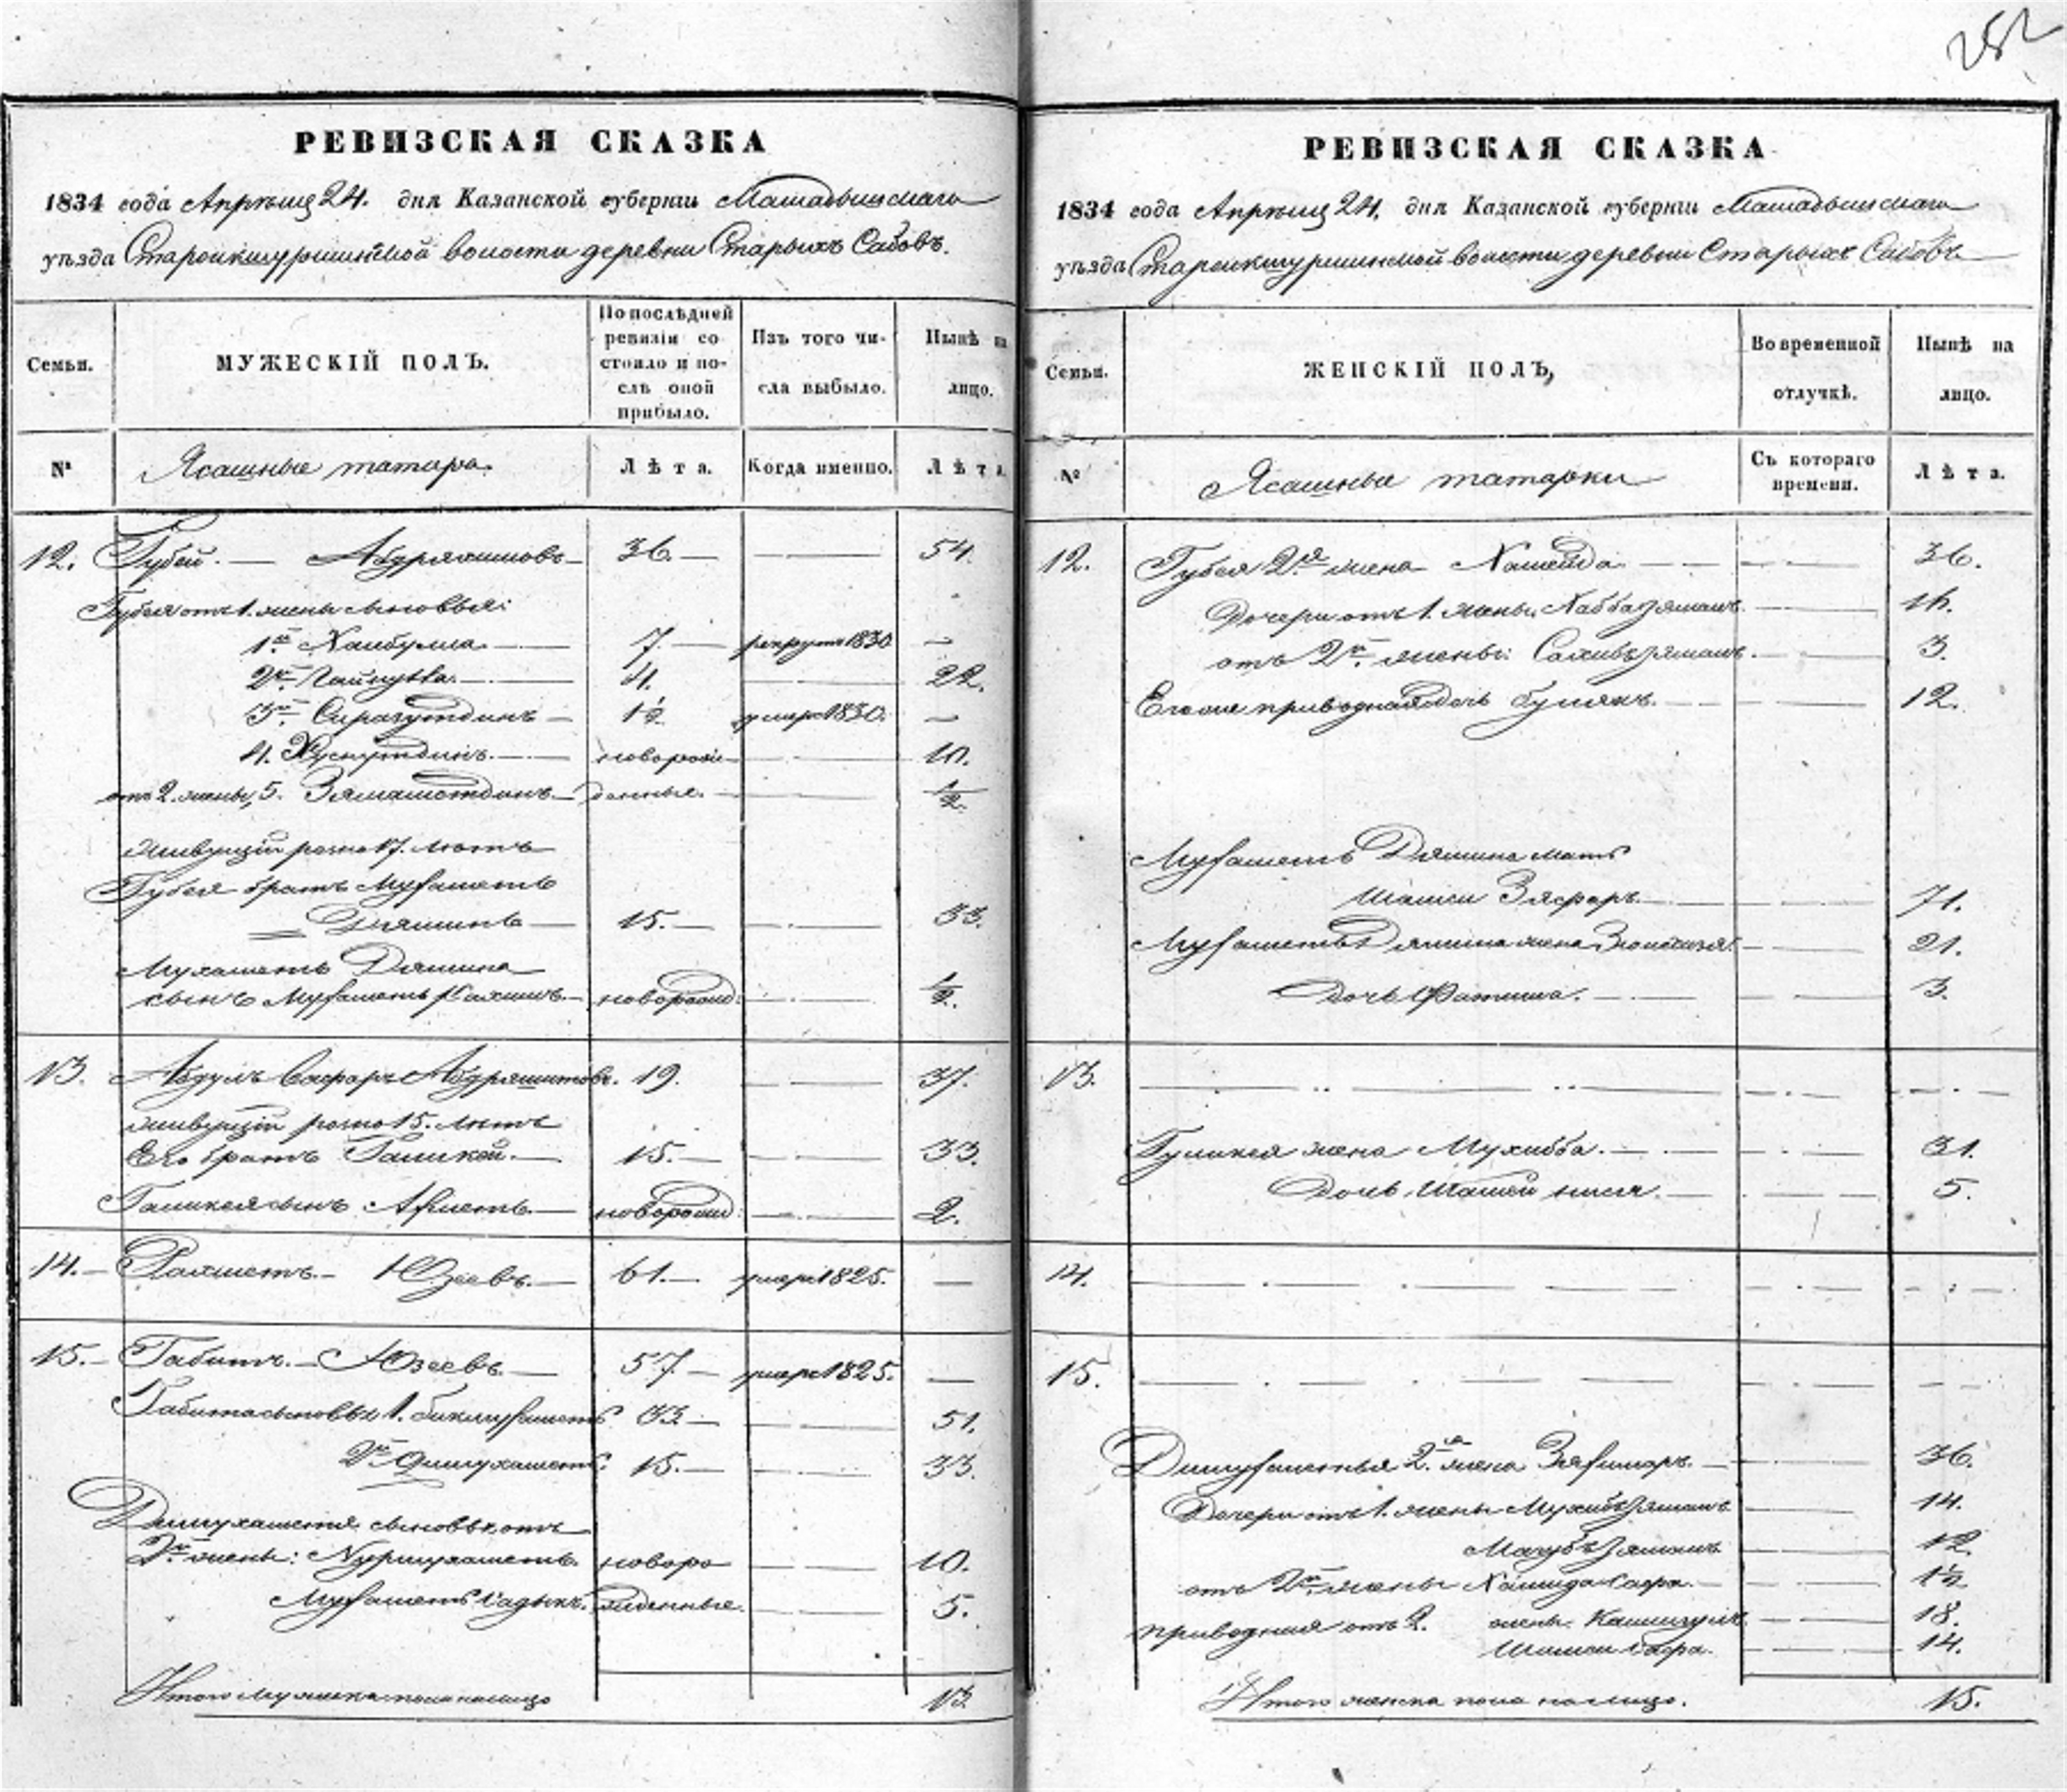 252
РЕВИЗСКАЯ СКАЗКА
1834 года Апрѣля 24. дня Казанской губерніи Мамадышскаго
уѣзда Староикшурминской волости деревни Старыхъ Сабовъ.
Семьи.
МУЖЕСКІЙ ПОЛЪ.
По послѣдней ревизіи состояло и послѣ оной прибыло.
Изъ того числа выбыло.
Нынѣ на лицо.
№
Ясашные татара.
Лѣта.
Когда именно.
Лѣта
12. Губей. — Абдряшитовъ 36. — 54.
Губея отъ 1. жены сыновья:
1й Хаибулла 7. рекрут 1830 —
2й 4. 22.
3й Сиразутдинъ 1½ умре 1830. —
4. Хуснутдинъ. новорож 10.
отъ 2. жены, 5. денные. ½
живущій розно 17. лѣтъ
Губея братъ Мухаметъ
Дияминъ 15. 33.
Мухаметъ Диямина
сынъ Мухаметъ Рахимъ. новорожд: ½
13. Абдулъ Вафаръ Абдряшитовъ. 19. 37.
живущій розно 15. лѣтъ
Его братъ Галикей. 15. 33.
Галикея сынъ Ахметъ. новорожд: 2.
14. Рахметъ. Юзеевъ. 61. умре 1825. —
15. Габитъ. Юзеевъ. 57. умре 1825. —
Габита сыновья 1. Бикмухаметъ 33. 51.
2й Димухаметъ: 15. 33.
Димухаметя сыновья отъ
2й жены: Нурмухаметъ. новоро 10.
Мухаметъ Садыкъ. жденные. 5.
Итого мужеска пола налицо 13.
РЕВИЗСКАЯ СКАЗКА
1834 года Апрѣля 24. дня Казанской губерніи Мамадышскаго
уѣзда Староикшурминской волости деревни Старыхъ Сабовъ
Семьи.
ЖЕНСКІЙ ПОЛЪ,
Во временной отлучкѣ.
Нынѣ на лицо.
№
Ясашные татарки
Съ котораго времени.
Лѣта.
12. Губея 2я жена 36.
Дочери отъ 1. жены. Хаббазямалъ. 16.
отъ 2й жены: Сахибзямалъ. 3.
Его же приводная дочь Булякъ. 12.
Мухаметъ Диямина мать
Шамси Зяфаръ. 71.
Мухаметъ Диямина жена 21.
Дочь Фатима. 3.
13.
жена Мухибба. 31.
Дочь 5.
14.
15.
Димухаметья 2я жена 36.
Дочери отъ 1. жены Мухибзямалъ 14.
Магубзямалъ 12.
отъ 2й жены 1½
приводная отъ 2. жены 18.
14.
Итого женска пола налицо. 15.